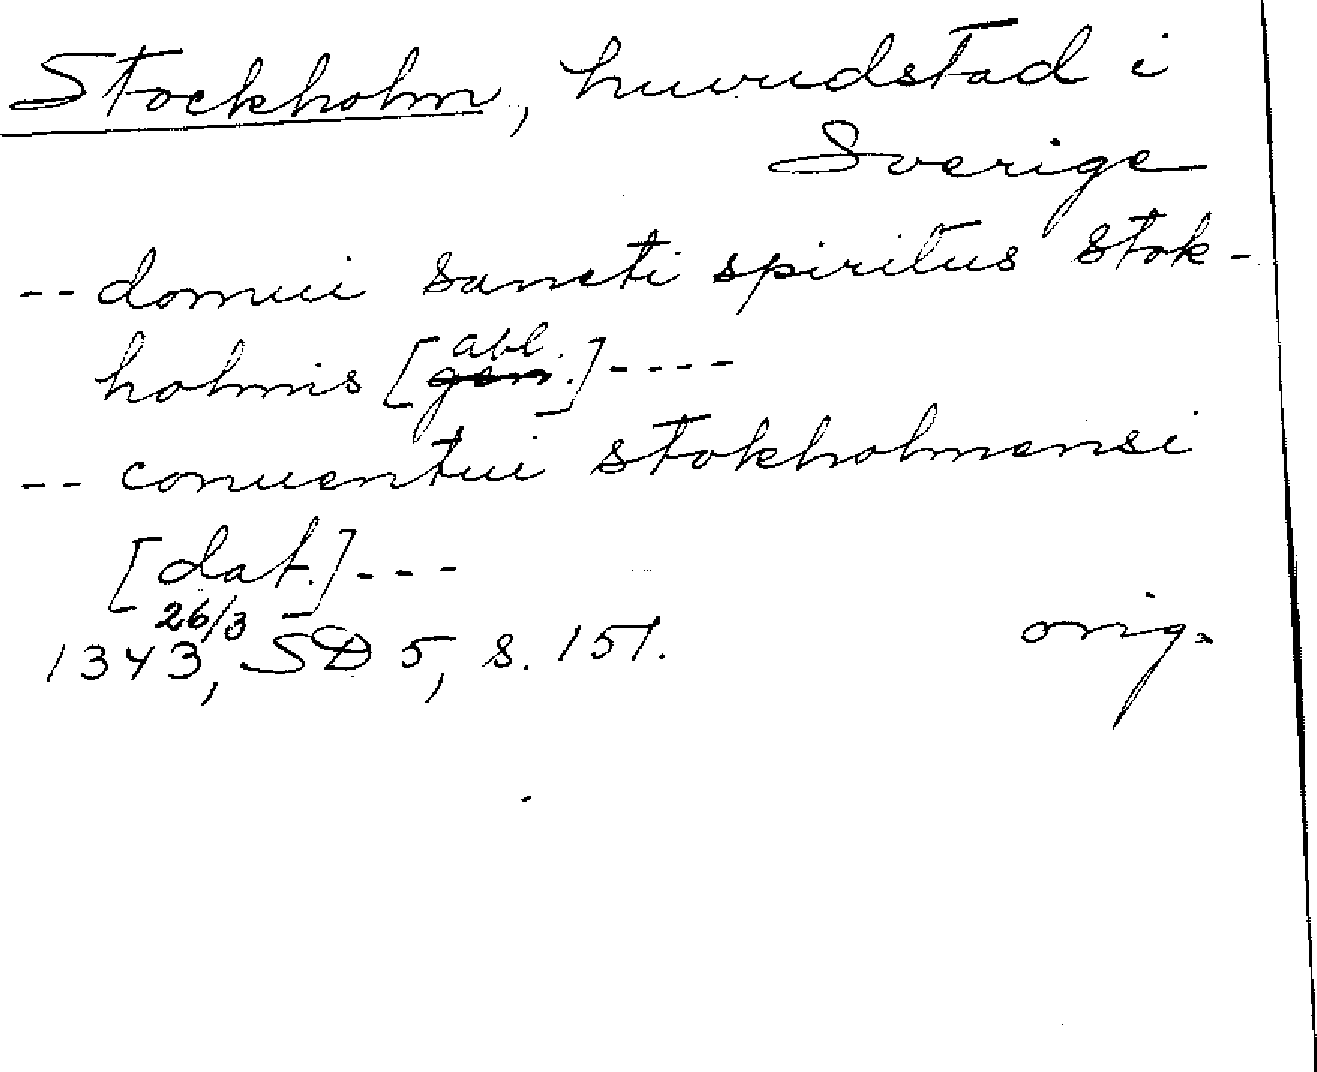 Stockholm, huvudstad i
Sverige
-- domui sancti spiritus stok-
holmis [abl.] ----
-- conuentui stokholmensi
[dat.] ---
26/3
1343, SD 5, s. 151. orig.